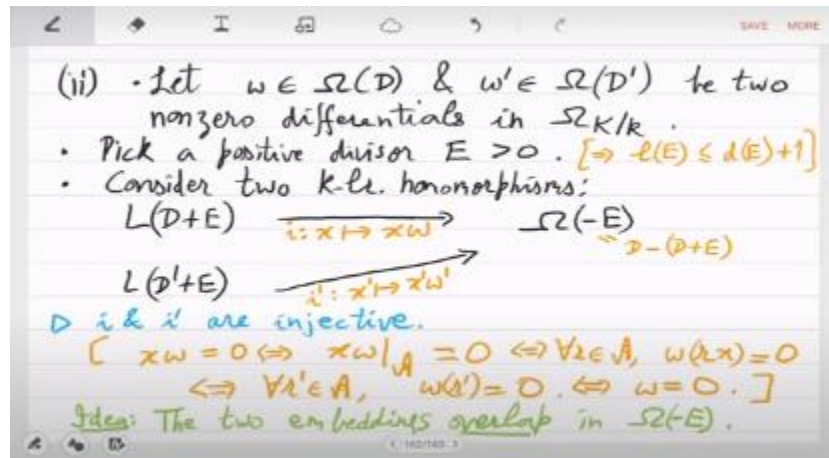 SAVE MORE
(ii) · Let ω ∈ Ω(D) & ω' ∈ Ω(D') be two
nonzero differentials in Ω_{K/k}.
· Pick a positive divisor E > 0. [⇒ l(E) ≤ d(E)+1]
· Consider two k-lr. homomorphisms:
L(D+E) ⟶ Ω(-E)
i: x ↦ xω
" D-(D+E)
L(D'+E) ⟶
i': x' ↦ x'ω'
▷ i & i' are injective.
[ xω = 0 ⇔ xω|_A = 0 ⇔ ∀r∈A, ω(rx) = 0
⇔ ∀r'∈A, ω(r') = 0. ⇔ ω = 0. ]
Idea: The two embeddings overlap in Ω(-E).